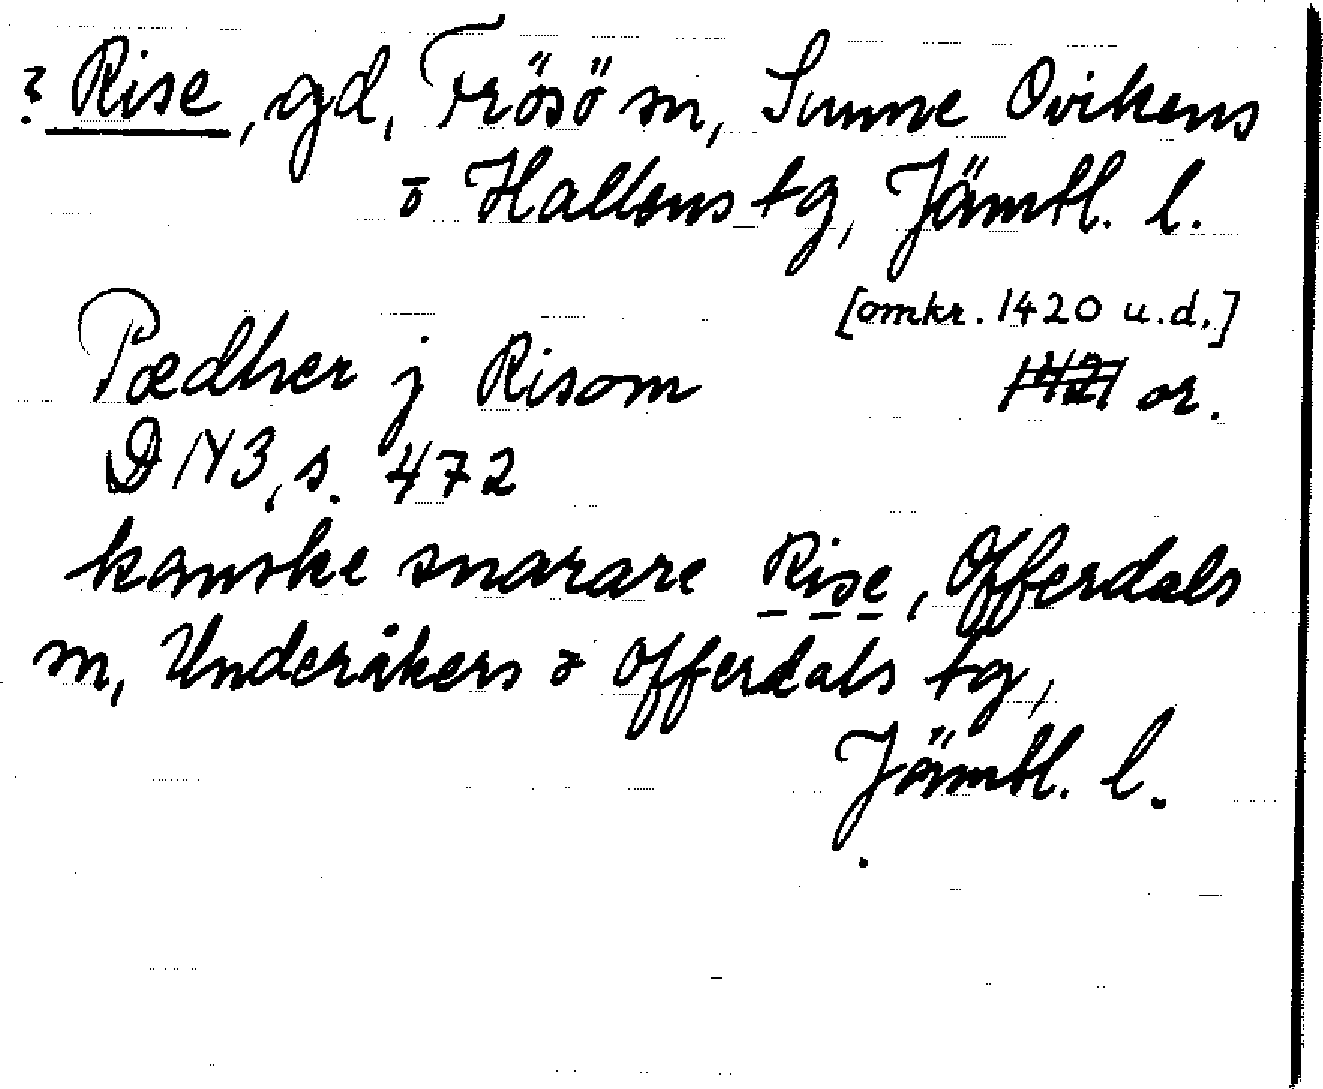 ? Rise, gd, Frösö sn, Sunne Ovikens
o Hallens tg, Jämtl. l.
[omkr. 1420 u.d.]
Pædher j Risom 1421 or.
DN 3, s. 472
kanske snarare Rise, Offerdals
sn, Undersåkers o Offerdals tg,
Jämtl. l.